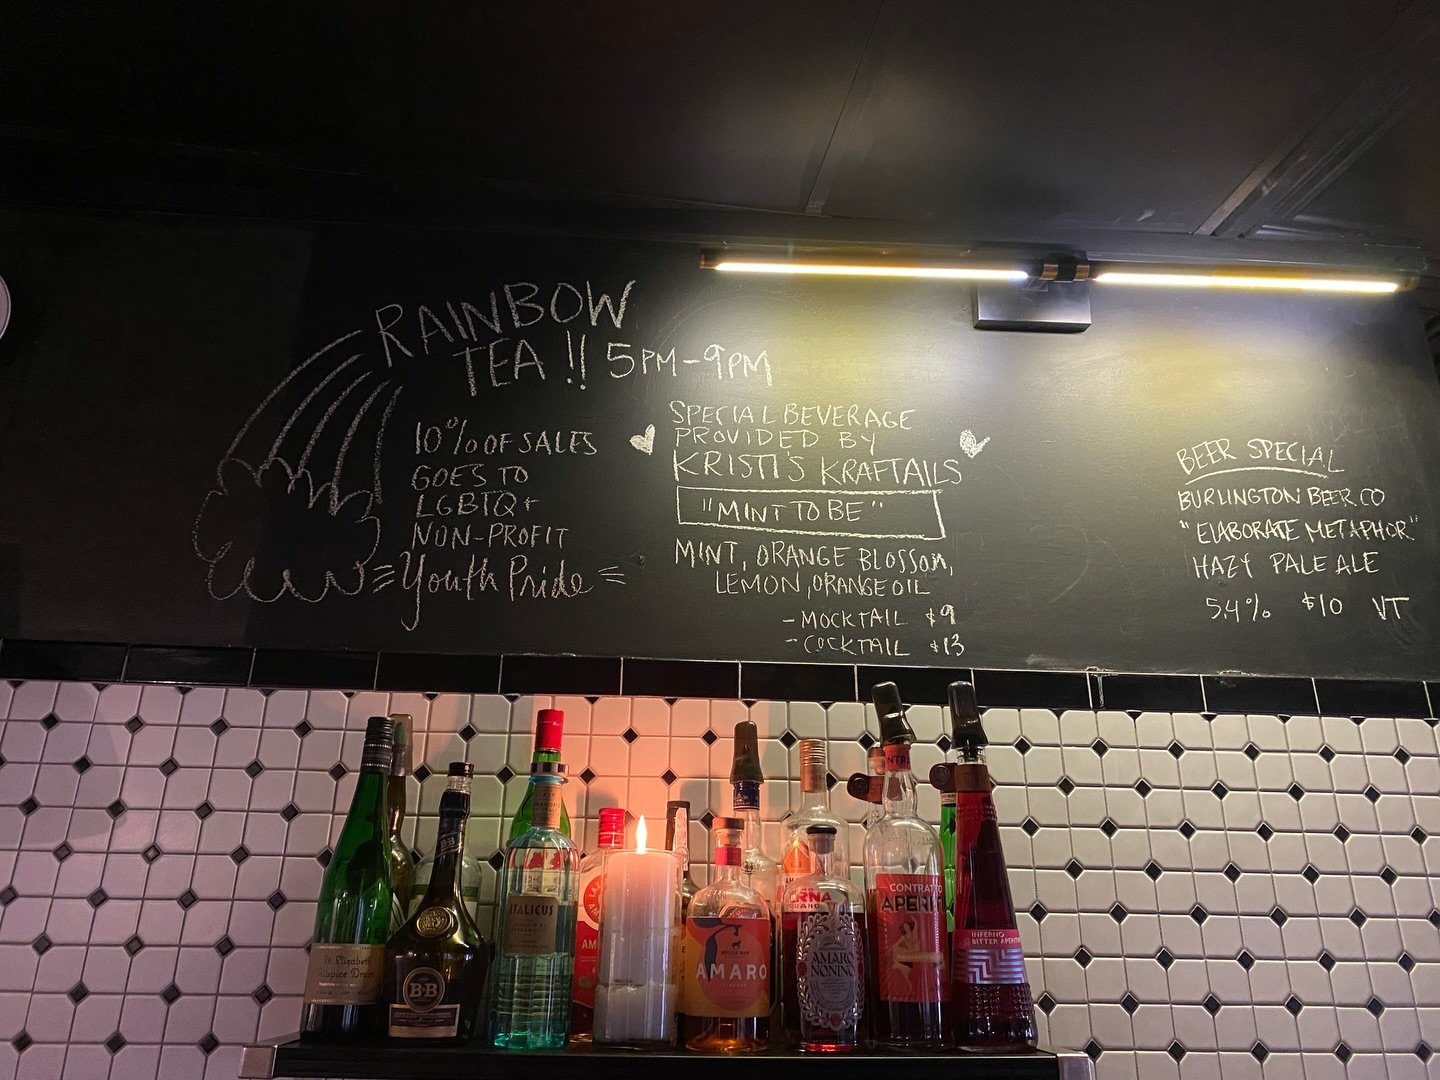 RAINBOW
TEA !! 5PM-9PM
10% OF SALES
GOES TO
LGBTQ+
NON-PROFIT
Youth Pride
SPECIAL BEVERAGE
PROVIDED BY
KRISTI'S KRAFTAILS
"MINT TO BE"
MINT, ORANGE BLOSSOM,
LEMON, ORANGE OIL
- MOCKTAIL $9
- COCKTAIL $13
BEER SPECIAL
BURLINGTON BEER CO
"ELABORATE METAPHOR"
HAZY PALE ALE
5.4% $10 VT
St. Elizabeth
Allspice Dram
B&B
B&B
ITALICUS
AMARO
AMARO
NONINO
CONTRATTO
APERI
INFERNO
BITTER APERITIVO